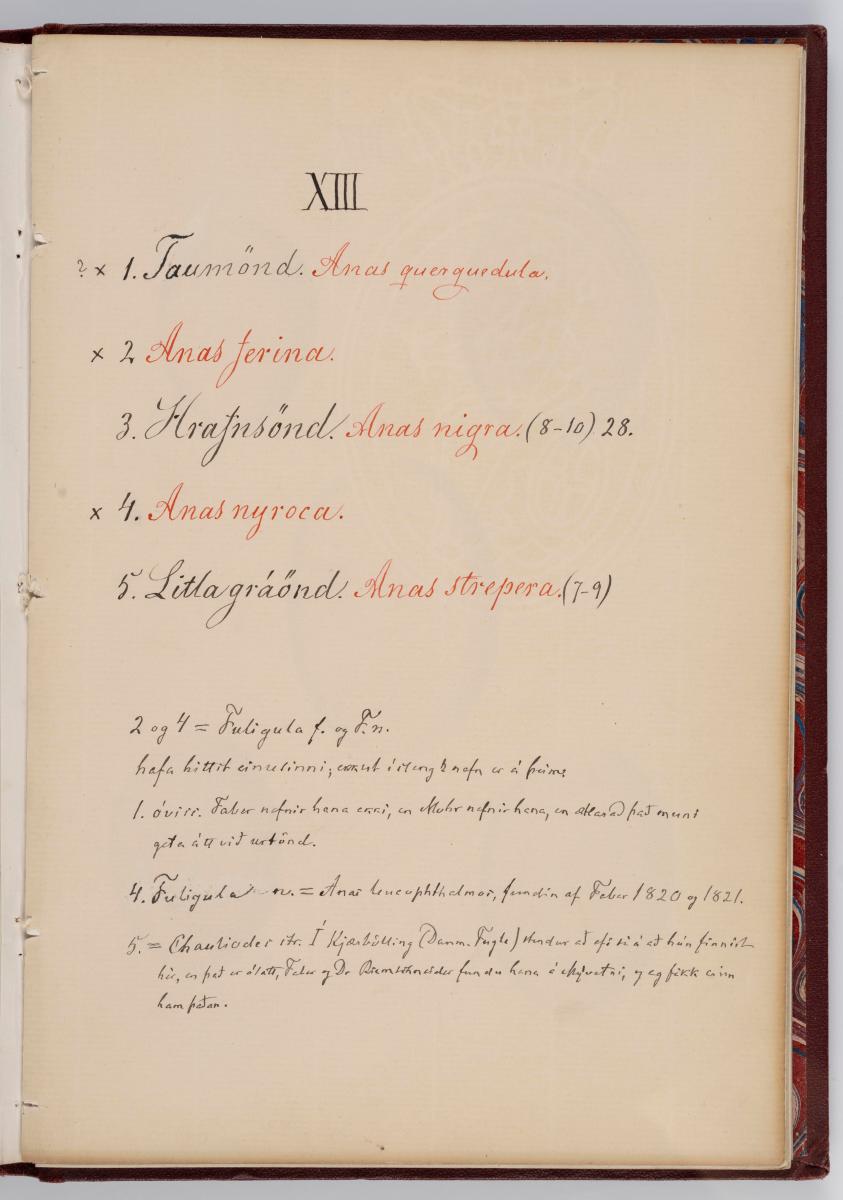 XIII
? x 1. Taumönd. Anas querquedula.
x 2 Anas ferina.
3. Hrafnsönd. Anas nigra. (8-10) 28.
x 4. Anas nyroca.
5. Litla gráönd. Anas strepera. (7-9)
2 og 4 = Fuligula f. og F. n.
hafa hittst einusinni; ekkert ísleng nafn er á þeim.
1. óviss. Faber nefnir hana ekki, en Mohr nefnir hana, en ætlar að það muni
geta átt við urtönd.
4. Fuligula n. = Anas leucophthalmos, fundin af Faber 1820 og 1821.
5. = Chauliodes str. Í Kjærbölling (Danm. Fugle) stendur að efi sé á að hún finnist
hér, en það er ósatt, Faber og Dr Riemschneider fundu hana á Mývatni, og eg fékk einn
ham þaðan.